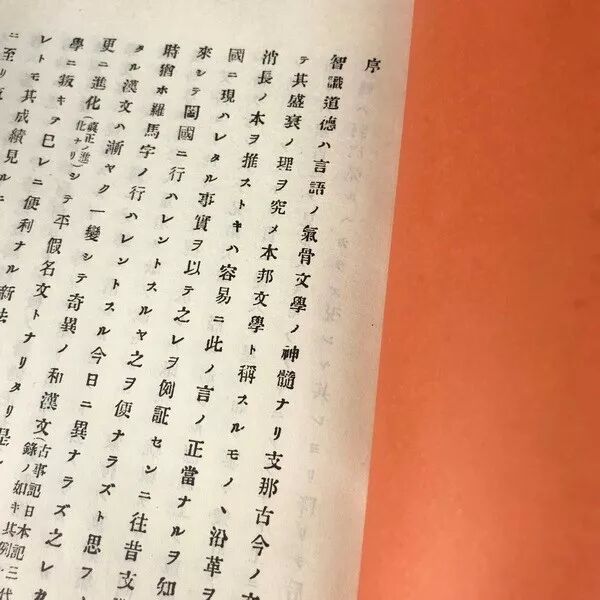 序
智識道德ハ言語ノ氣骨文學ノ神髓ナリ支那古今ノ
テ其盛衰ノ理ヲ究メ本邦文學ト稱スルモノヽ沿革ヲ
消長ノ本ヲ推ストキハ容易ニ此ノ言ノ正當ナルヲ知
國ニ現ハレタル事實ヲ以テ之レヲ例証センニ往昔支
來シテ闔國ニ行ハレントスルヤ之ヲ便ナラズト思フ
時猶ホ羅馬字ノ行ハレントスル今日ニ異ナラズ之レ
タル漢文ハ漸ヤク一變シテ奇異ノ和漢文(古事記日本記三代錄ノ如キ其例
更ニ進化(眞正ノ進化ナリ)シテ平假名文トナリタリ是
學ニ叛キテ已レニ便利ナル新法
レトモ其成績見ルニ
ニ至リ